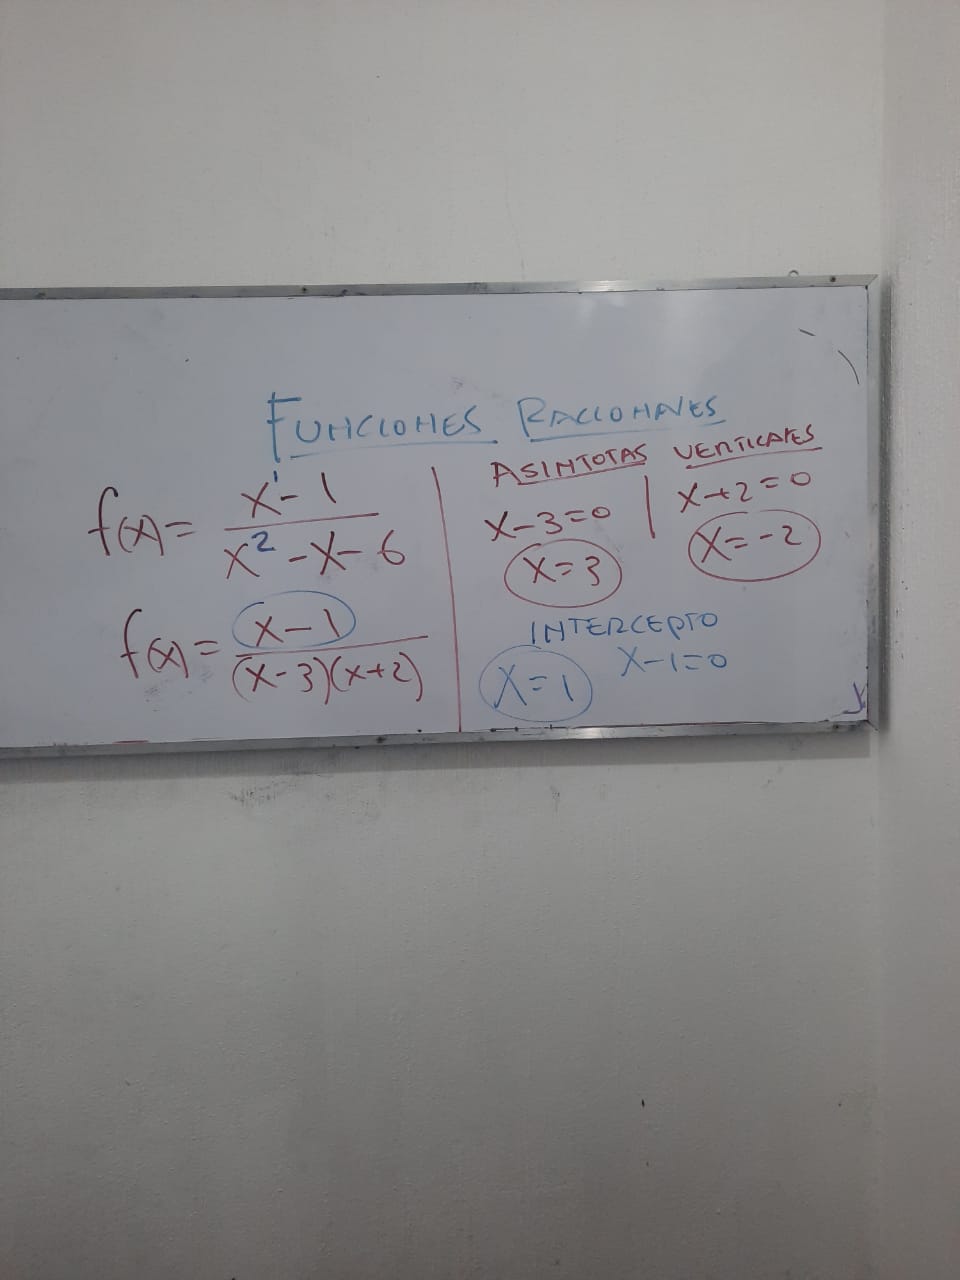 FUNCIONES RACIONALES
f(x) = x¹ - 1 / x² - x - 6
f(x) = x - 1 / (x - 3)(x + 2)
ASINTOTAS VERTICALES
x - 3 = 0 | x + 2 = 0
x = 3
x = -2
INTERCEPTO
x - 1 = 0
x = 1